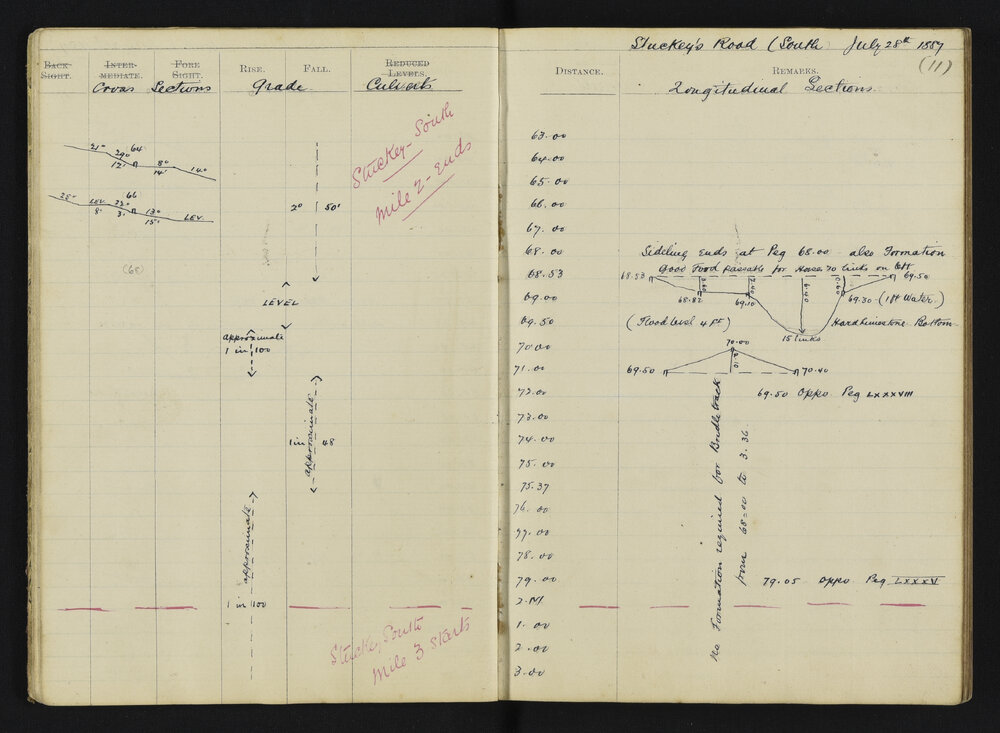 BACK SIGHT. INTER-MEDIATE. FORE SIGHT. RISE. FALL. REDUCED LEVELS.
Cross Sections Grade Culverts
21° 29° 64 12° 8° 14' 14°
28° LEV. 8' 33° 66 3' 13° 15° LEV.
2° 50'
(68)
Stuckey - South
Mile 2 - ends
LEVEL
approximate
1 in 100
approximate
1 in 48
approximate
1 in 100
Stuckey South
Mile 3 starts
Stuckey's Road (South July 28th 1887
(11)
DISTANCE. REMARKS.
Longitudinal Sections
63.00
64.00
65.00
66.00
67.00
68.00
68.53
69.00
69.50
70.00
71.00
72.00
73.00
74.00
75.00
75.37
76.00
77.00
78.00
79.00
2.M
1.00
2.00
3.00
Sideling ends at Peg 68.00 also Formation
Good Ford passable for Horse 70 links on left
68.53 69.50
68.82 69.10 69.30 (1ft Water.)
(Flood level 4 ft) Hard limestone Bottom
15 links
70.00
69.50 70.40
69.50 Oppo Peg LXXXVIII
No Formation required for Bridle track
from 68.00 to 3.36
79.05 Oppo Peg LXXXV